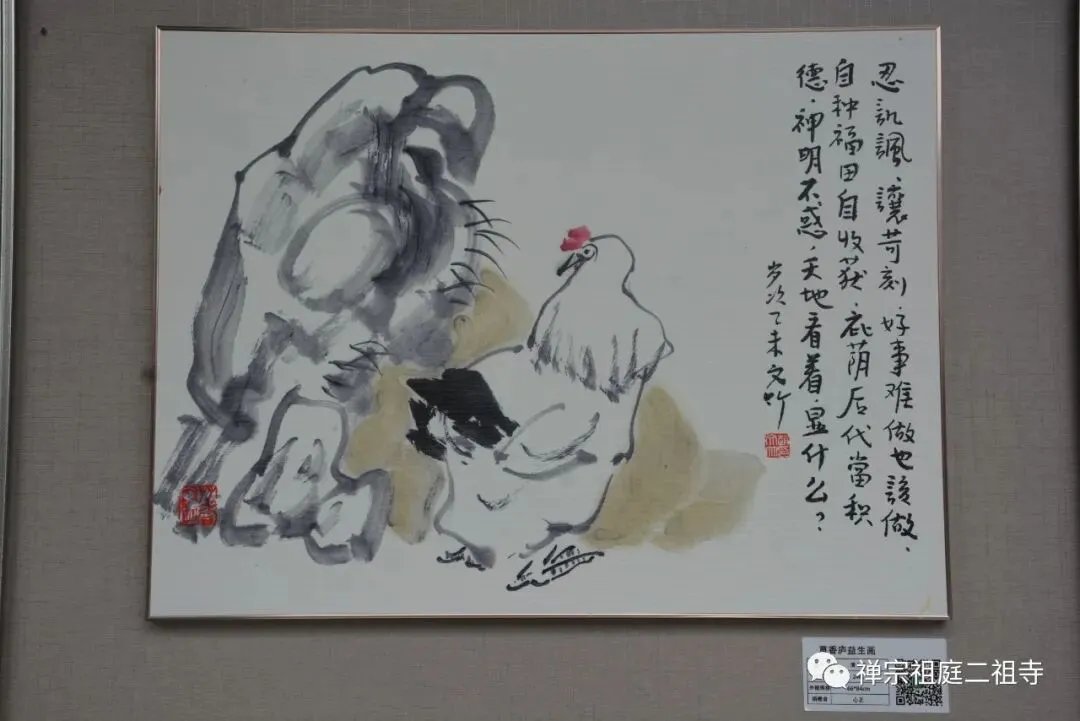 忍讥諷、讓苛刻、好事难做也該做、
自种福田自收获、庇荫后代當积
德、神明不惑、天地看着、显什么？
岁次乙未文竹
香庐益生画
禅宗祖庭二祖寺